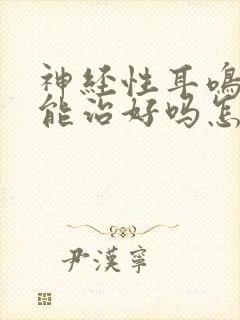 神经性耳鸣
能治好吗怎
尹漢寧